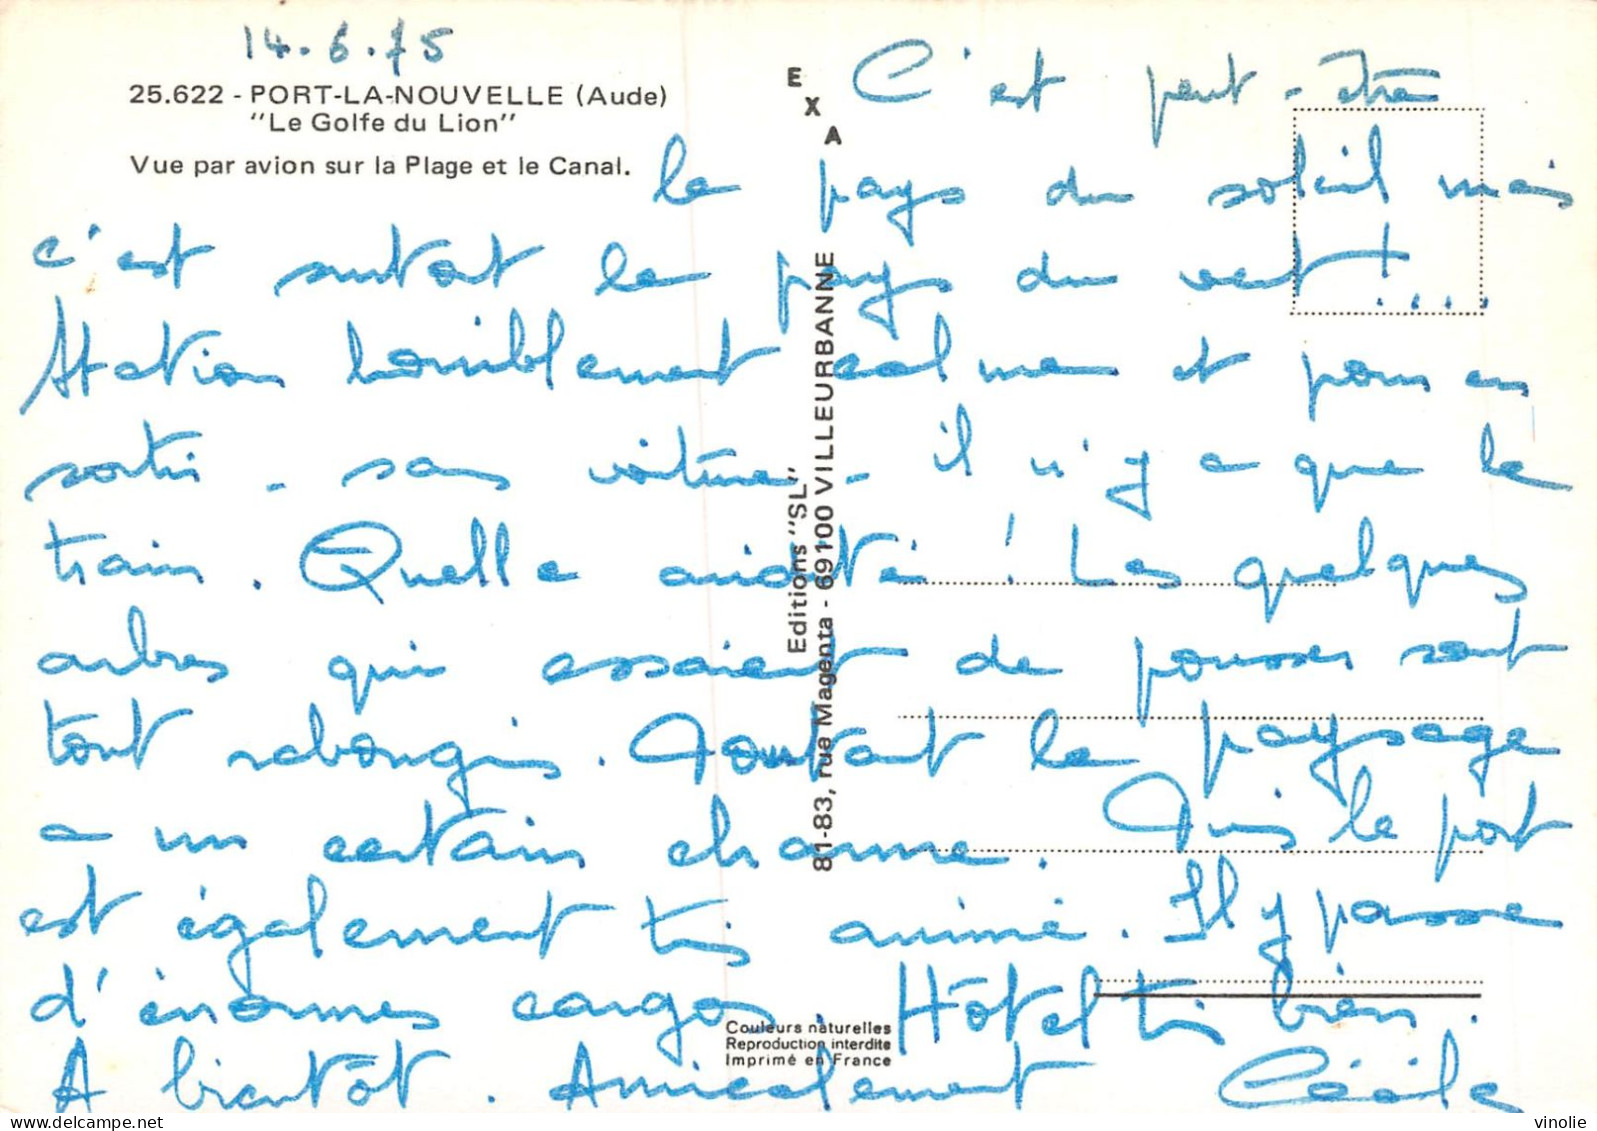 14.6.75
25.622 - PORT-LA-NOUVELLE (Aude)
"Le Golfe du Lion"
Vue par avion sur la Plage et le Canal.
C'est peut-être
le pays du soleil mais
c'est surtout le pays du vent !...
Station horriblement calme et pour en
sortir - sans voiture - il n'y a que le
train. Quelle aridité ! Les quelques
arbres qui essaient de pousser sont
tout rabougris. Pourtant le paysage
a un certain charme. Puis le port
est également très animé. Il y passe
d'énormes cargos. Hôtel très bien.
A bientôt. Amicalement Cécile
EXA
Editions "SL"
81-83, rue Magenta - 69100 VILLEURBANNE
Couleurs naturelles
Reproduction interdite
Imprimé en France
vinolie